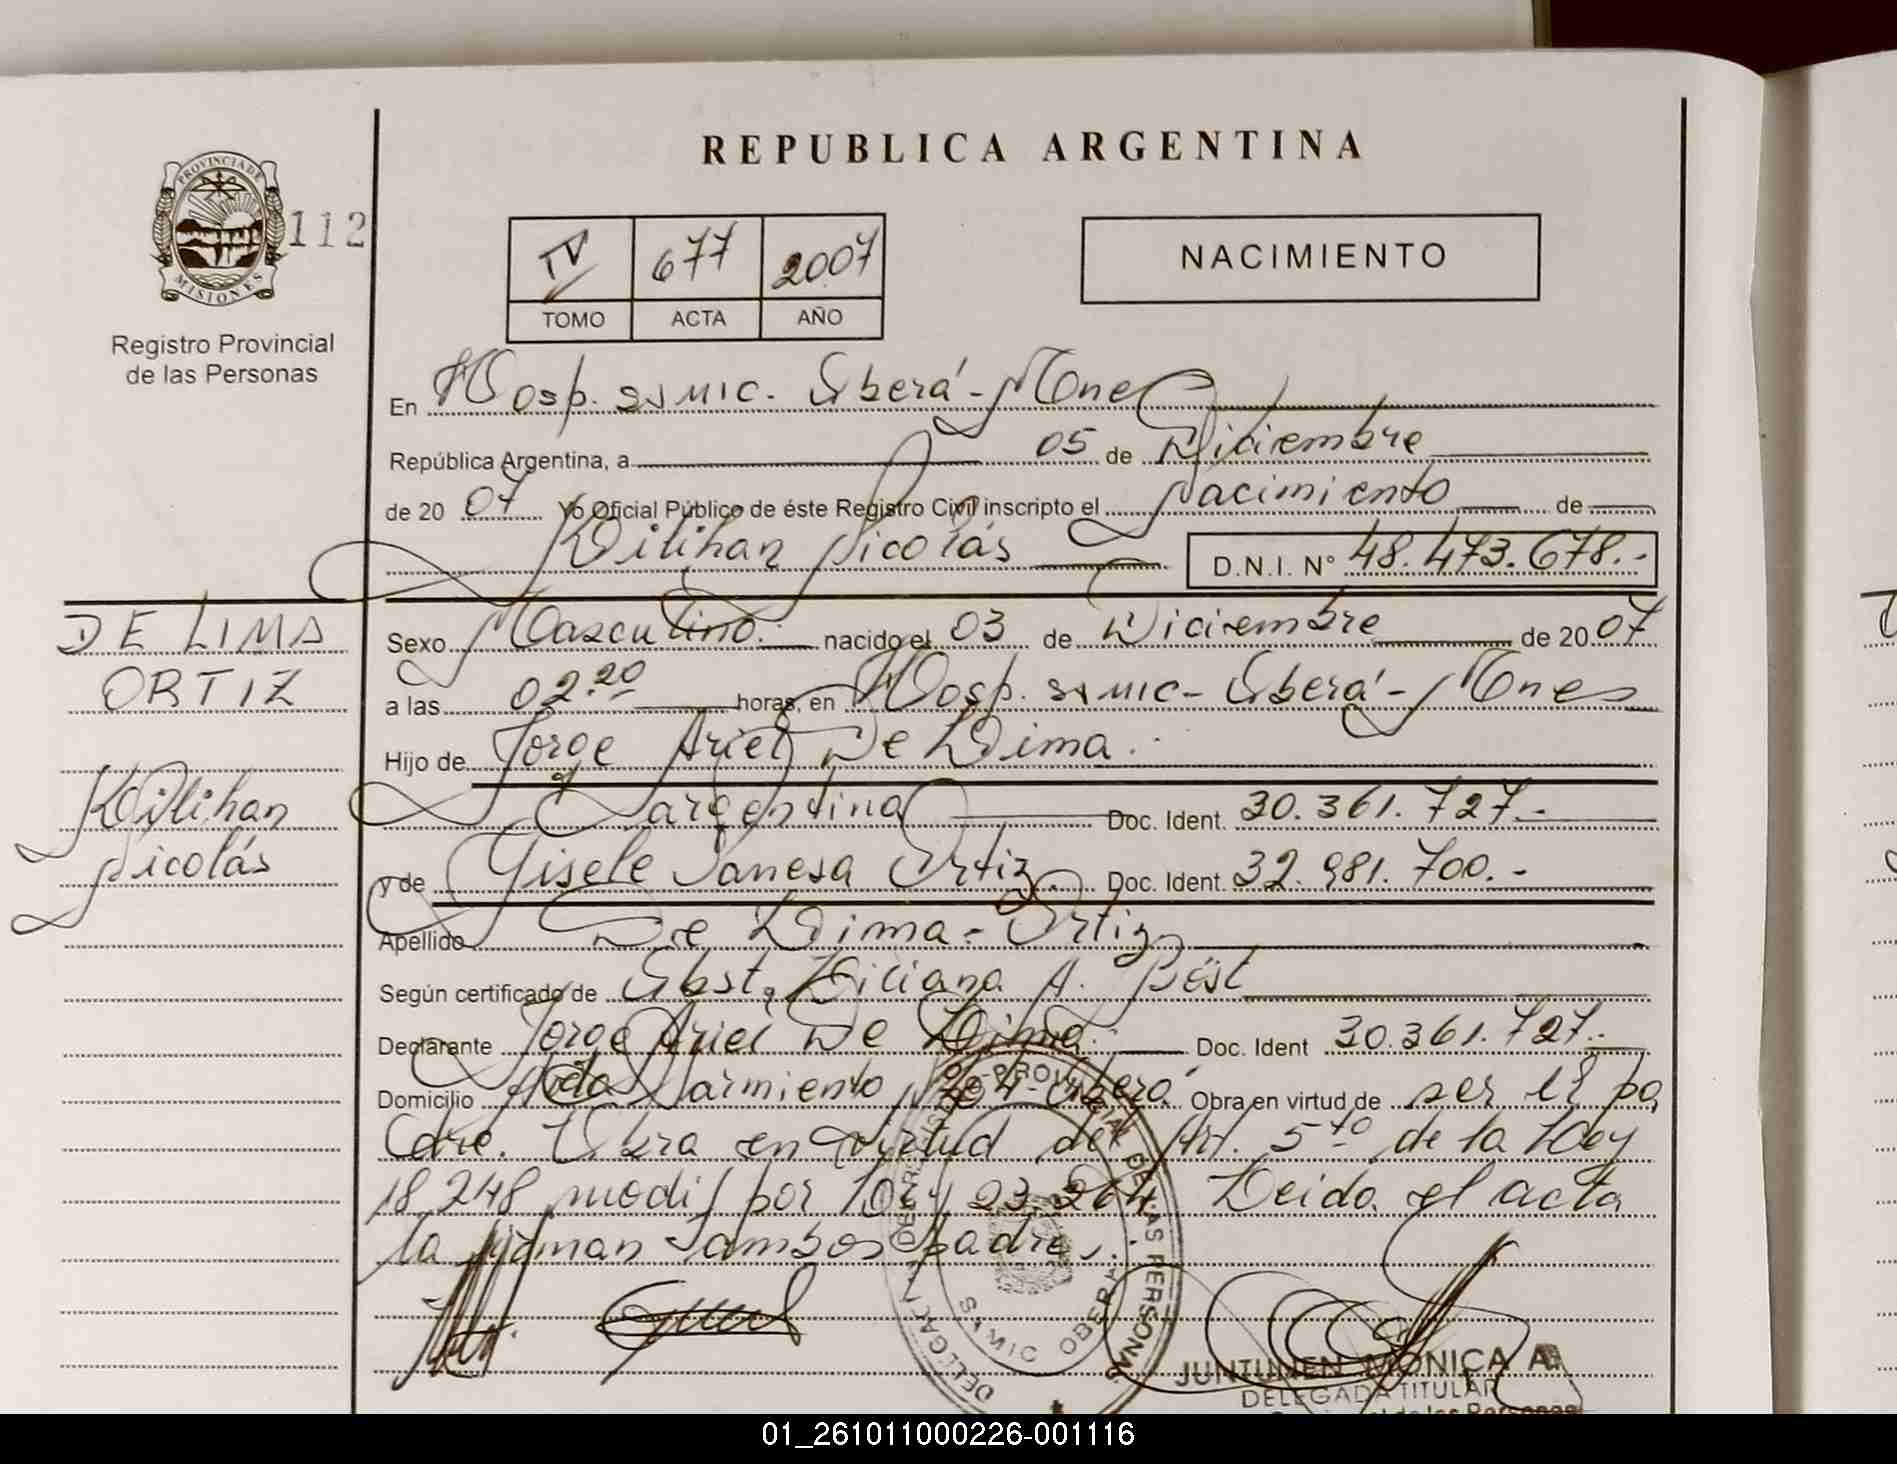 REPUBLICA ARGENTINA
PROVINCIA DE
MISIONES
112
Registro Provincial
de las Personas
IV 677 2007
TOMO ACTA AÑO
NACIMIENTO
En Hosp. SAMIC. Oberá - Mnes
República Argentina, a 05 de Diciembre
de 2007 Yo Oficial Público de éste Registro Civil inscripto el Nacimiento de
Kilihan Nicolás D.N.I. Nº 48.473.678.-
DE LIMA
ORTIZ
Kilihan
Nicolás
Sexo Masculino. nacido el 03 de Diciembre de 2007
a las 02.20 horas, en Hosp. SAMIC - Oberá - Mnes
Hijo de Jorge Ariel De Lima.
argentina Doc. Ident. 30.361.727.-
y de Gisele Vanesa Ortiz Doc. Ident. 32.981.700.-
Apellido De Lima - Ortiz
Según certificado de Obst. Liliana A. Best
Declarante Jorge Ariel De Lima. Doc. Ident 30.361.727.-
Domicilio Avda Sarmiento Oberá. Obra en virtud de ser el pa
dre. Obra en virtud del Art. 5to de la Ley
18.248 modif por Ley 23.264. Leida el acta
la firman ambos padres.
DELEGACION DEL REGISTRO PROVINCIAL DE LAS PERSONAS
SAMIC OBERA
JUNTUNEN MONICA A.
DELEGADA TITULAR
01_261011000226-001116